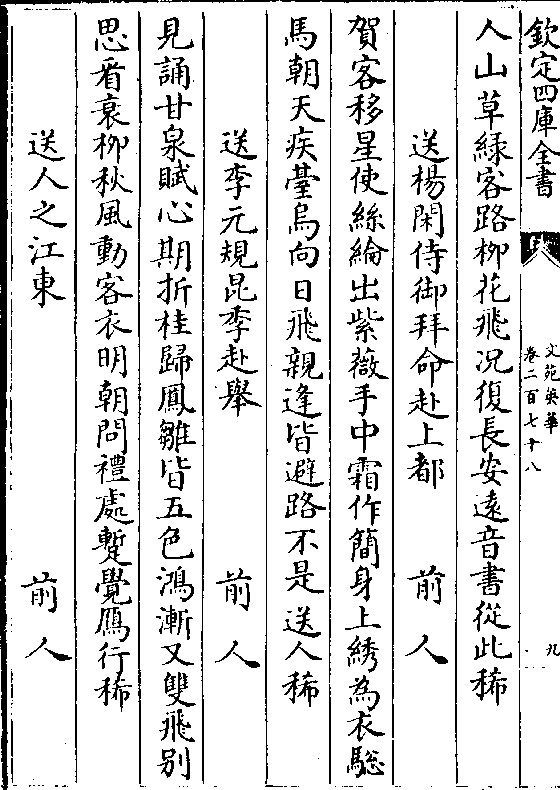 欽定四庫全書
文苑英華
卷二百七十八
九
人山草緑客路柳花飛况復長安逺音書從此稀
送楊閑侍御拜命赴上都 前人
賀客移星使絲綸出紫薇手中霜作簡身上綉為衣驄
馬朝天疾臺烏向日飛親逢皆避路不是送人稀
送李元規昆季赴舉 前人
見誦甘泉賦心期折桂歸鳳雛皆五色鴻漸又雙飛别
思看衰栁秋風動客衣明朝問禮處蹔覺鴈行稀
送人之江東 前人